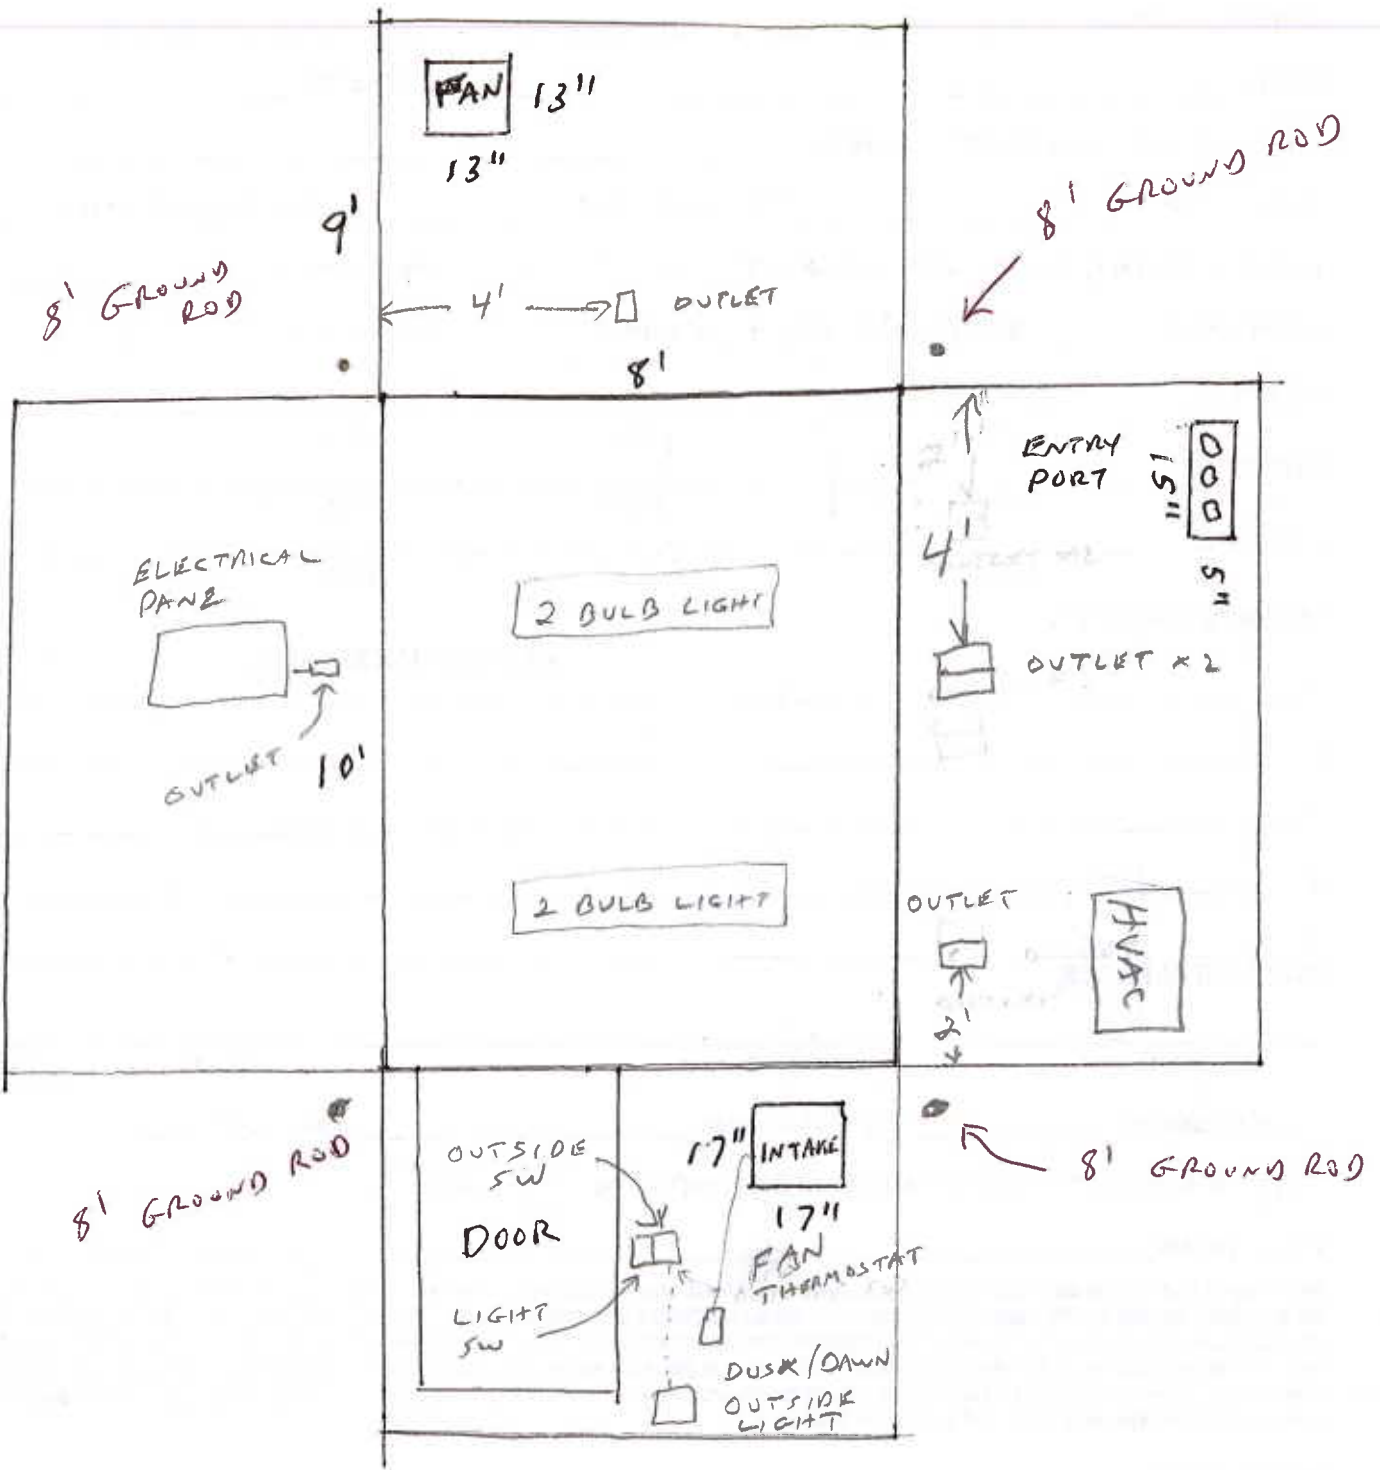 FAN 13"
13"
9'
8' GROUND
ROD
8' GROUND ROD
4'
OUTLET
8'
ENTRY
PORT
15"
5"
4'
OUTLET x 2
ELECTRICAL
PANE
OUTLET
10'
2 BULB LIGHT
2 BULB LIGHT
OUTLET
2'
HVAC
8' GROUND ROD
8' GROUND ROD
OUTSIDE
SW
DOOR
LIGHT
SW
17"
INTAKE
17"
FAN
THERMOSTAT
DUSK/DAWN
OUTSIDE
LIGHT